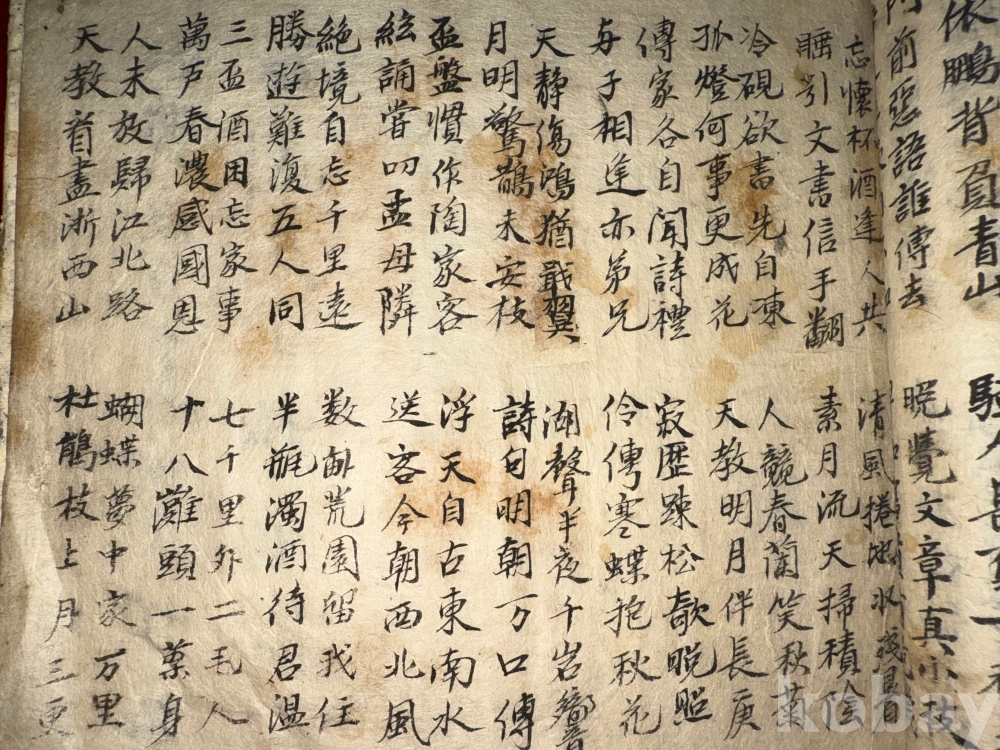 依鵬背負青山
門前惡語誰傳去
晩覺文章真小技
忘懷杯酒逢人共
睡引文書信手翻
冷硯欲書先自凍
孤燈何事更成花
傳家各自聞詩禮
与子相逢亦弟兄
天靜傷鴻猶戢翼
月明驚鵲未安枝
盃盤慣作陶家客
絃誦嘗叨孟母隣
絶境自忘千里遠
勝遊難復五人同
三盃酒困忘家事
萬戶春濃感國恩
人未放歸江北路
天教看盡浙西山
清風捲地收殘暑
素月流天掃積陰
人競春蘭笑秋菊
天教明月伴長庚
寂歷踈松欹晩照
伶俜寒蝶抱秋花
湖聲半夜千岩響
詩句明朝万口傳
浮天自古東南水
送客今朝西北風
数畝荒園留我住
半瓶濁酒待君温
七千里外二毛人
十八灘頭一葉身
蝴蝶夢中家万里
杜鵑枝上月三更
kobay